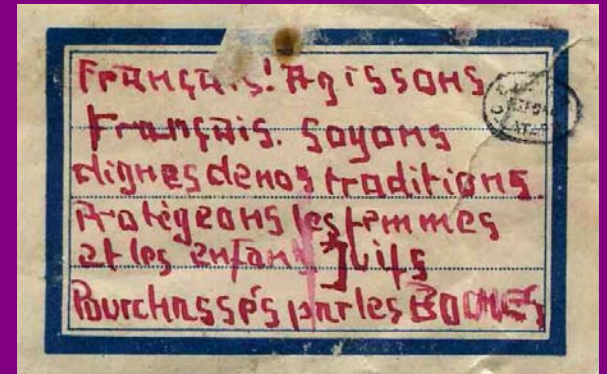 Français! Agissons
Français. Soyons
dignes de nos traditions.
Protégeons les femmes
et les enfants Juifs
Pourchassés par les BOCHES